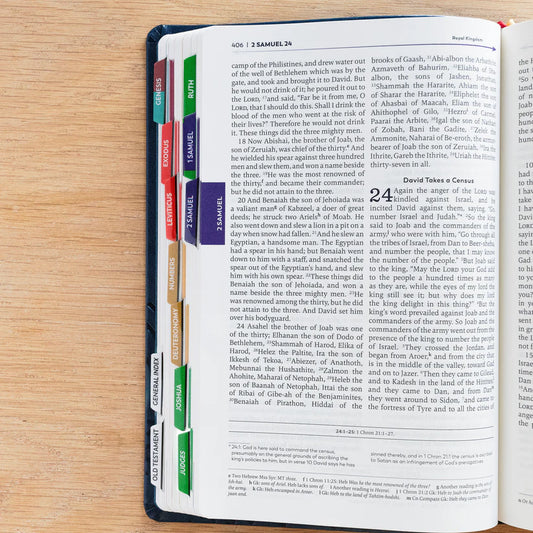 406 | 2 SAMUEL 24
Royal Kingdom
GENESIS
EXODUS
LEVITICUS
NUMBERS
DEUTERONOMY
JOSHUA
JUDGES
RUTH
1 SAMUEL
2 SAMUEL
2 SAMUEL
GENERAL INDEX
OLD TESTAMENT
camp of the Philistines, and drew water out
of the well of Bethlehem which was by the
gate, and took and brought it to David. But
he would not drink of it; he poured it out to
the LORD, ¹⁷and said, "Far be it from me, O
LORD, that I should do this. Shall I drink the
blood of the men who went at the risk of
their lives?" Therefore he would not drink
it. These things did the three mighty men.
18 Now Abishai, the brother of Joab, the
son of Zeruiah, was chief of the thirty.
And he
wielded his spear against three hundred
men and slew them, and won a name beside
the three. ¹⁹He was the most renowned of
the thirty, and became their commander;
but he did not attain to the three.
20 And Benaiah the son of Jehoiada was
a valiant man of Kabzeel, a doer of great
deeds; he struck two Ariels of Moab. He
also went down and slew a lion in a pit on a
day when snow had fallen. ²¹And he slew an
Egyptian, a handsome man. The Egyptian
had a spear in his hand; but Benaiah went
down to him with a staff, and snatched the
spear out of the Egyptian's hand, and slew
him with his own spear. ²²These things did
Benaiah the son of Jehoiada, and won a
name beside the three mighty men. ²³He
was renowned among the thirty, but he did
not attain to the three. And David set him
over his bodyguard.
24 Asahel the brother of Joab was one
of the thirty; Elhanan the son of Dodo of
Bethlehem, ²⁵Shammah of Harod, Elika of
Harod, ²⁶Helez the Paltite, Ira the son of
Ikkesh of Tekoa, ²⁷Abiezer, of Anathoth,
Mebunnai the Hushathite, ²⁸Zalmon the
Ahohite, Maharai of Netophah, ²⁹Heleb the
son of Baanah of Netophah, Ittai the son
of Ribai of Gibe-ah of the Benjaminites,
³⁰Benaiah of Pirathon, Hiddai of the
brooks of Gaash, ³¹Abi-albon the Arbathite,
Azmaveth of Bahurim, ³²Eliahba of
albon, the sons of Jashen, Jonathan,
³³Shammah the Hararite, Ahiam the son
of Sharar the Hararite, ³⁴Eliphelet the son
of Ahasbai of Maacah, Eliam the son of
Ahithophel of Gilo, ³⁵Hezro of Carmel,
Paarai the Arbite, ³⁶Igal the son of Nathan
of Zobah, Bani the Gadite, ³⁷Zelek the
Ammonite, Naharai of Be-eroth, the armor-
bearer of Joab the son of Zeruiah, ³⁸Ira the
Ithrite, Gareb the Ithrite, ³⁹Uriah the Hittite:
thirty-seven in all.
David Takes a Census
24 Again the anger of the LORD was
kindled against Israel, and he
incited David against them, saying, "Go,
number Israel and Judah." ²So the king
said to Joab and the commanders of the
army, who were with him, "Go through all
the tribes of Israel, from Dan to Beer-sheba,
and number the people, that I may know
the number of the people." ³But Joab said
to the king, "May the LORD your God add
to the people a hundred times as many
as they are, while the eyes of my lord the
king still see it; but why does my lord
the king delight in this thing?" ⁴But the
king's word prevailed against Joab and the
commanders of the army. So Joab and the
commanders of the army went out from the
presence of the king to number the people
of Israel. ⁵They crossed the Jordan, and
began from Aroer, and from the city that
is in the middle of the valley, toward Gad
and on to Jazer. ⁶Then they came to Gilead,
and to Kadesh in the land of the Hittites;
and they came to Dan, and from Dan
they went around to Sidon, ⁷and came to
the fortress of Tyre and to all the cities of
24:1-25: 1 Chron 21:1-27.
* 24:1: God is here said to command the census,
presumably on the general grounds of ascribing the
king's policies to him, but in verse 10 David says he has
sinned thereby, and in 1 Chron 21:1 the census is ascribed
to Satan as an infringement of God's prerogatives.